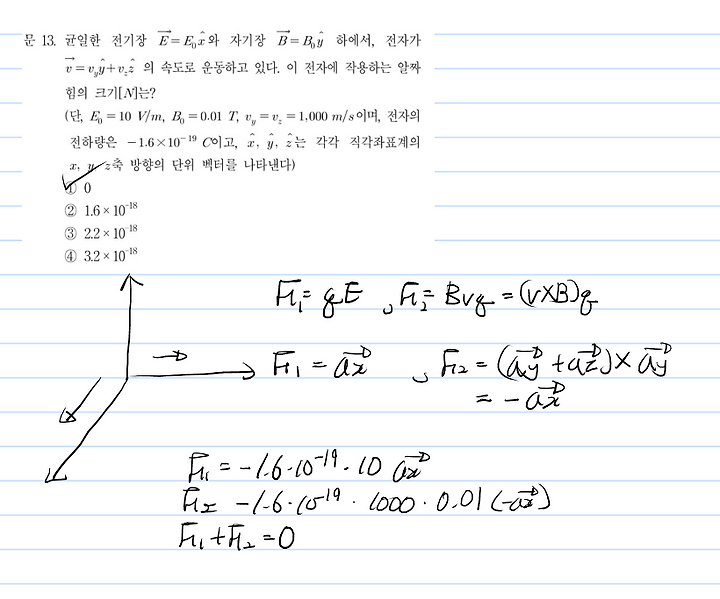 문 13. 균일한 전기장 $\vec{E}=E_0\hat{x}$와 자기장 $\vec{B}=B_0\hat{y}$ 하에서, 전자가
$\vec{v}=v_y\hat{y}+v_z\hat{z}$ 의 속도로 운동하고 있다. 이 전자에 작용하는 알짜
힘의 크기[N]는?
(단, $E_0=10$ V/m, $B_0=0.01$ T, $v_y=v_z=1,000$ m/s이며, 전자의
전하량은 $-1.6\times10^{-19}$ C이고, $\hat{x}$, $\hat{y}$, $\hat{z}$는 각각 직각좌표계의
x, y, z축 방향의 단위 벡터를 나타낸다)
① 0
② $1.6\times10^{-18}$
③ $2.2\times10^{-18}$
④ $3.2\times10^{-18}$
$F_1=qE$, $F_2=Bvq=(v\times B)q$
$F_1=\vec{ax}$, $F_2=(\vec{ay}+\vec{az})\times\vec{ay}$
$=-\vec{ax}$
$F_1=-1.6\cdot10^{-19}\cdot10\ \vec{ax}$
$F_2\ -1.6\cdot10^{-19}\cdot1000\cdot0.01(-\vec{ax})$
$F_1+F_2=0$